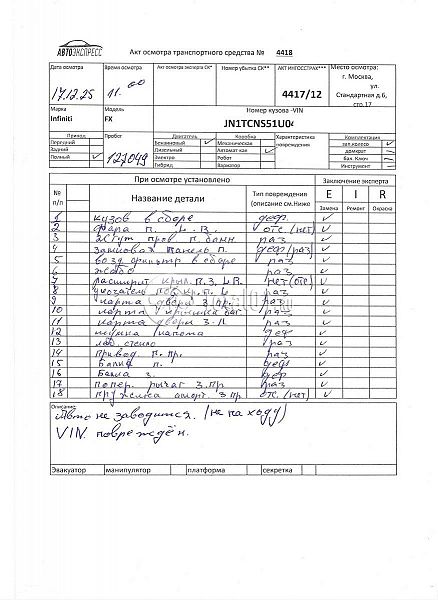 АВТОЭКСПРЕСС
Акт осмотра транспортного средства № 4418
Дата осмотра Время осмотра Акт осмотра эксперта СК* Номер убытка СК** АКТ ИНГОССТРАХ*** Место осмотра:
17.12.25 11.00 4417/12 г. Москва, ул. Стандартная д.6, стр.17
Марка Модель Номер кузова -VIN
Infiniti FX JN1TCNS51U0
Привод Пробег Двигатель Коробка Характеристика повреждения Комплектация
Передний Бензиновый ✓ Механическая зап.колесо ✓
Задний Дизельный Автоматная ✓ домкрат
Полный ✓ 127049 Электро Робот бал. Ключ
Гибрид Вариатор Инструмент
№ п/п При осмотре установлено Заключение эксперта
Название детали Тип повреждения (описание см.Ниже E I R
Замена Ремонт Окраска
1 кузов в сборе деф. ✓
2 фара п. L. R. отс.(нет) ✓
3 жгут пров. п. бамп. раз ✓
4 замковая панель п. деф (раз) ✓
5 возд. фильтр в сборе раз ✓
6 раз ✓
7 расширит. крыл. п.з. L R. нет (отс) ✓
8 раз ✓
9 карта двери з. пр. раз ✓
10 карта раз ✓
11 карта двери з. л раз ✓
12 шумка капота деф ✓
13 лоб. стекло раз ✓
14 привод п. пр. раз ✓
15 балка п. деф ✓
16 балка з. деф ✓
17 попер. рычаг з. пр раз ✓
18 аморт. з. пр отс. (нет) ✓
Описание:
Авто не заводится. (не на ходу)
VIN повреждён.
Эвакуатор манипулятор платформа секретка